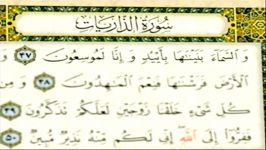 سُورَةُ الذَّارِيَاتِ
وَالسَّمَآءَ بَنَيْنَٰهَا بِأَيْيْدٍ وَإِنَّا لَمُوسِعُونَ ٤٧ وَ
الْأَرْضَ فَرَشْنَٰهَا فَنِعْمَ الْمَٰهِدُونَ ٤٨ وَمِن
كُلِّ شَىْءٍ خَلَقْنَا زَوْجَيْنِ لَعَلَّكُمْ تَذَكَّرُونَ ٤٩
فَفِرُّوٓا إِلَى اللَّهِ إِنِّى لَكُم مِّنْهُ نَذِيرٌ مُّبِينٌ ٥٠